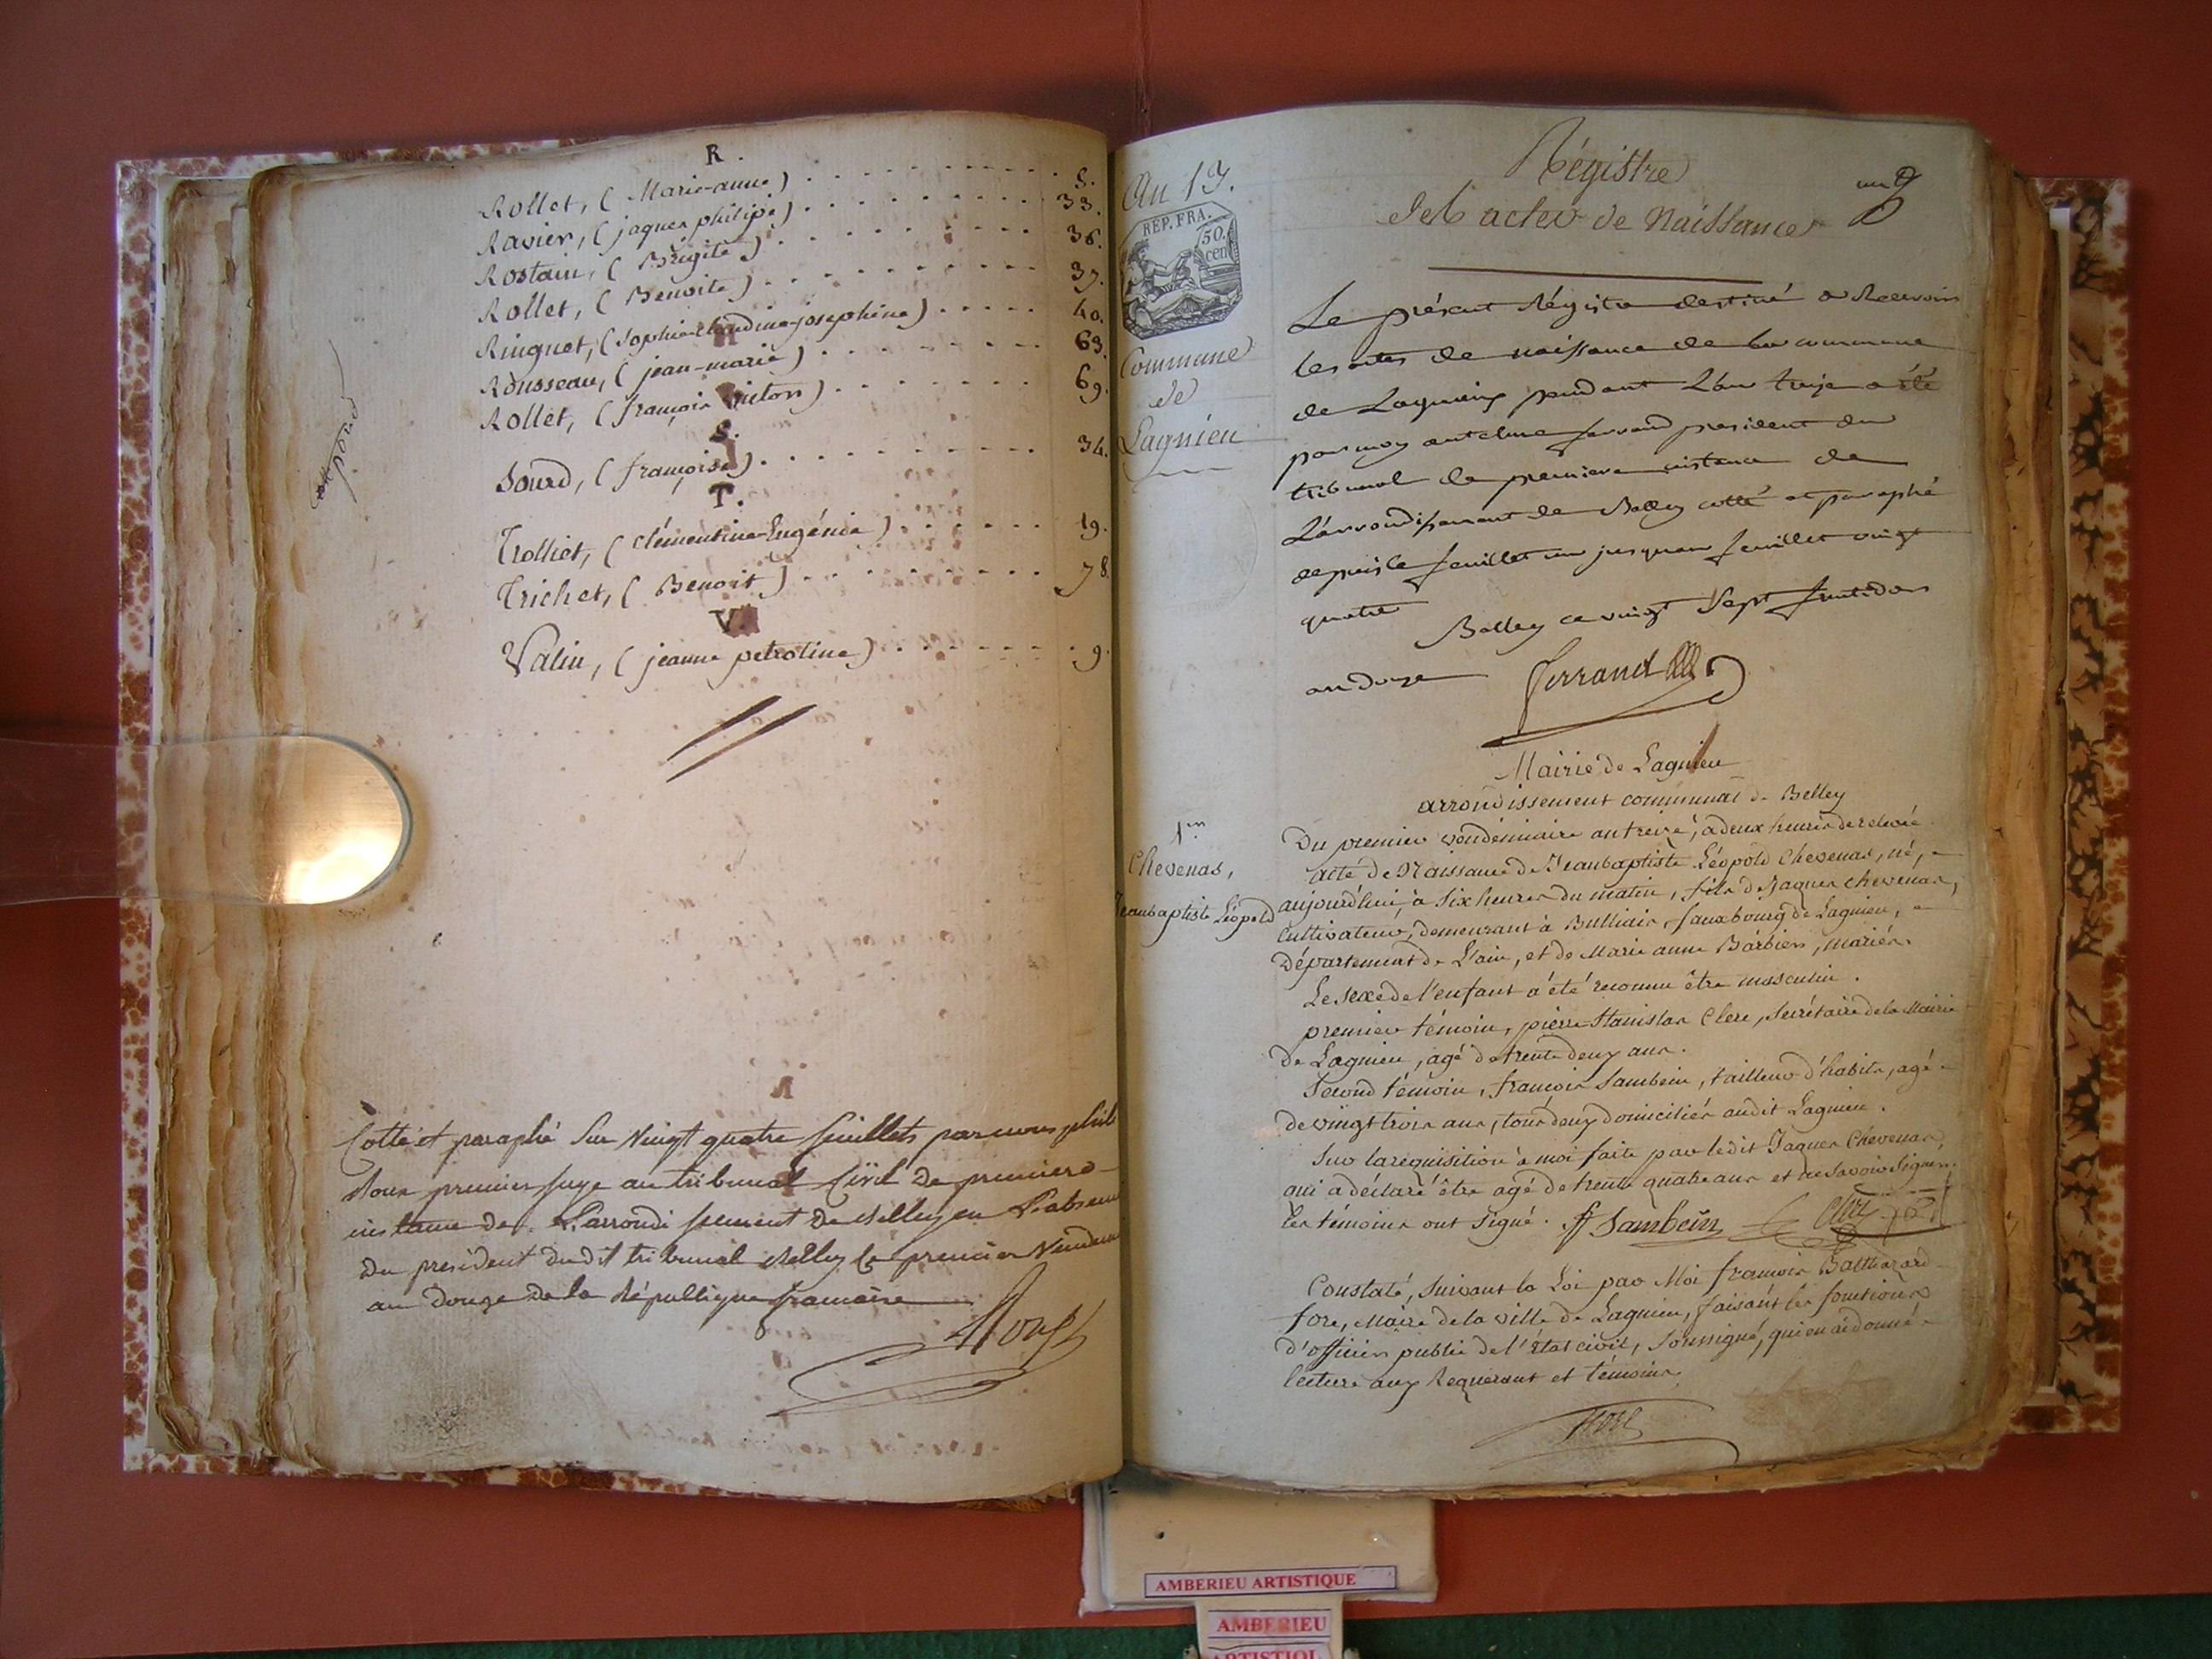 R.
Rollet, (Marie-anne) 5.
Ravier, (jaques philipe) 33.
Rostain, (Brigite) 36.
Rollet, (Benoite) 37.
Ringuet, (Sophie-Claudine-josephine) 40.
Rousseau, (jean-marie) 63.
Rollet, (françois victor) 69.
S.
Sourd, (françoise) 34.
T.
Trolliet, (Clémentine-Eugénie) 19.
Trichet, (Benoit) 78.
V.
Valin, (jeanne petroline) 9.
Cotté et paraphé Sur Vingt quatre feuillets par nous
premier juge au tribunal Civil de premiere
instance de L'arrondissement de Belley en L'absence
du president dudit tribunal Belley le premier Vendem
an Douze de la République francaise
An 13.
REP. FRA.
50.
cen
Commune
de
Lagnieu
Régistre
des actes de Naissance
un
Le présent Régistre destiné a Recevoir
les actes de naissance de la commune
de Lagnieux pendant L'an treize a été
par moy antelme ferrand president du
tribunal de premiere instance de
L'arrondissement de Belley cotté et paraphé
depuis le feuillet un jusquau feuillet vingt
quatre Belley ce vingt Sept fructidor
an douze Ferrand
Mairie de Lagnieu
arrondissement communal de Belley
1er
Chevenas,
Jeanbaptiste Léopold
Du premier vendémiaire an treize, a deux heures de relevée
acte de Naissance de Jeanbaptiste Léopold Chevenas, né,
aujourd'hui, à Six heures du matin, fils de Jaques chevenas,
Cultivateur, demeurant à Bulliair, fauxbourg de Lagnieu,
Département de L'ain, et de Marie anne Barbier, mariés.
Le sexe de l'enfant a été reconnu être masculin.
premier témoin, pierre-Stanislas Clerc, Secrétaire de la Mairie
de Lagnieu, agé de trente deux ans.
Second témoin, françois Sambein, tailleur d'habits, agé
de vingt trois ans, tous deux domiciliés audit Lagnieu.
Sur la requisition à moi faite par ledit Jaques Chevenas,
qui a déclaré être agé de trente quatre ans et ne Savoir Signer.
Les témoins ont signé. ff Sambein Clerc
Constaté, Suivant la Loi par Moi françois Balthazard
fore, Maire de la ville de Lagnieu, faisant les fonctions
d'officier public de l'état civil, Soussigné, qui en ai donné
lecture aux Requerant et témoins.
fore
AMBERIEU ARTISTIQUE
AMBERIEU